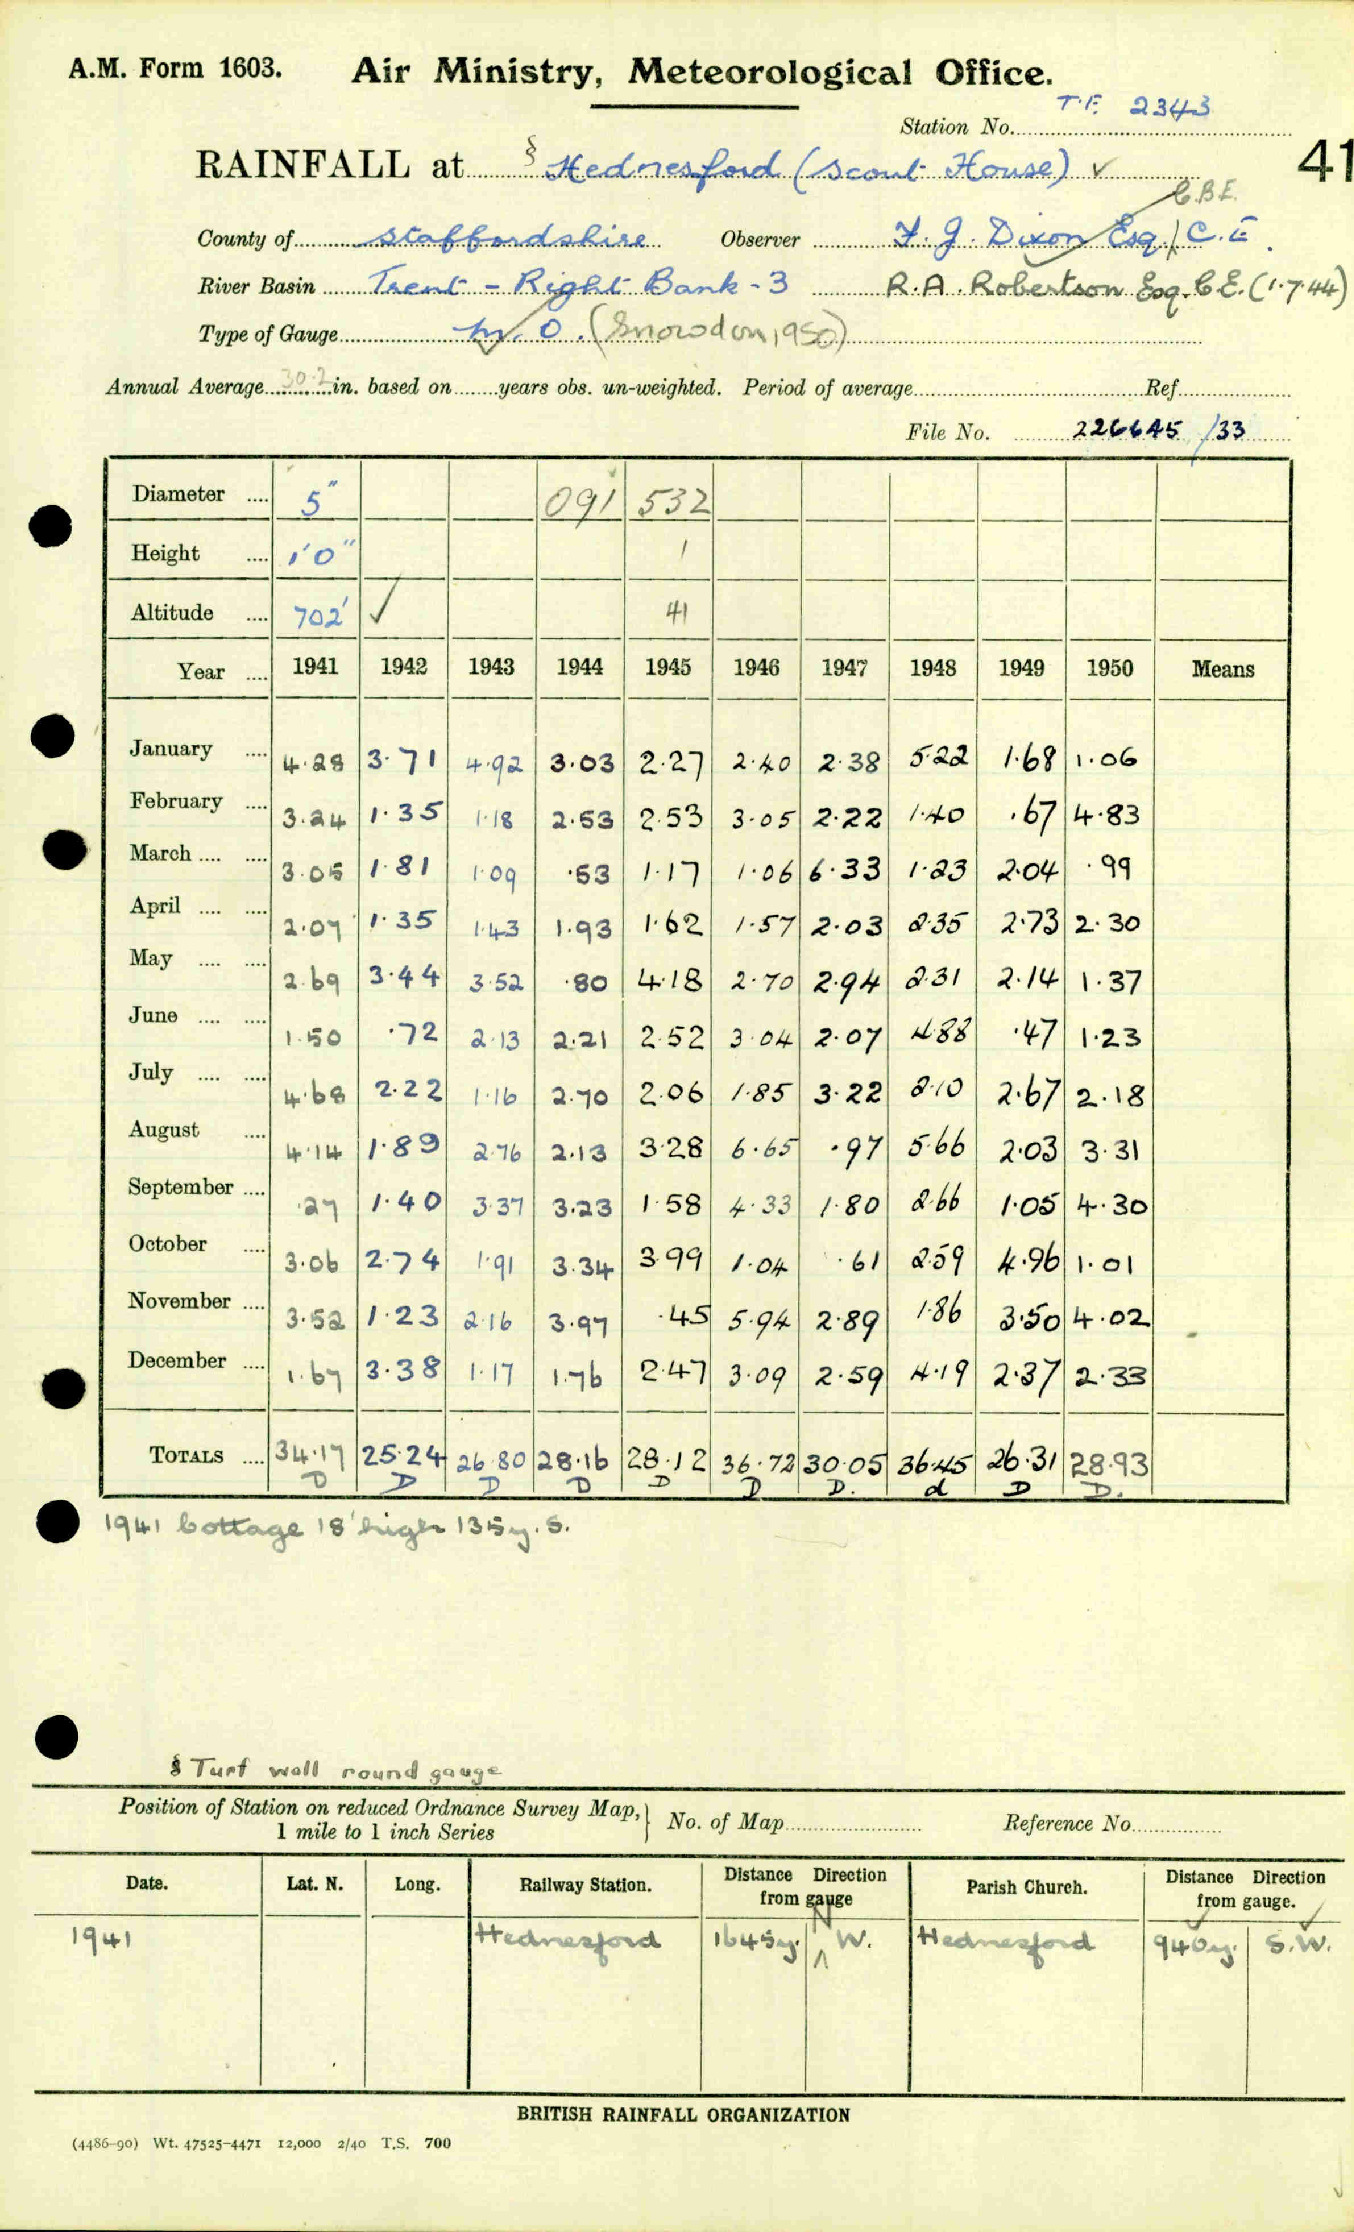 A.M. Form 1603. Air Ministry, Meteorological Office.
Station No. T.F. 2343
RAINFALL at § Hednesford (Scout House) ✓ 41
C.B.E.
County of Staffordshire Observer F. J. Dixon Esq., C.E.
River Basin Trent - Right Bank - 3 R.A. Robertson Esq. C.E. (1.7.44)
Type of Gauge M.O. (Snowdon, 1950)
Annual Average 30.2 in. based on years obs. un-weighted. Period of average Ref
File No. 226645/33
Diameter 5" 091 532
Height 1'0" 1
Altitude 702' ✓ 41
Year 1941 1942 1943 1944 1945 1946 1947 1948 1949 1950 Means
January 4.28 3.71 4.92 3.03 2.27 2.40 2.38 5.22 1.68 1.06
February 3.24 1.35 1.18 2.53 2.53 3.05 2.22 1.40 .67 4.83
March 3.05 1.81 1.09 .53 1.17 1.06 6.33 1.23 2.04 .99
April 2.07 1.35 1.43 1.93 1.62 1.57 2.03 2.35 2.73 2.30
May 2.69 3.44 3.52 .80 4.18 2.70 2.94 2.31 2.14 1.37
June 1.50 .72 2.13 2.21 2.52 3.04 2.07 4.88 .47 1.23
July 4.68 2.22 1.16 2.70 2.06 1.85 3.22 2.10 2.67 2.18
August 4.14 1.89 2.76 2.13 3.28 6.65 .97 5.66 2.03 3.31
September .27 1.40 3.37 3.23 1.58 4.33 1.80 2.66 1.05 4.30
October 3.06 2.74 1.91 3.34 3.99 1.04 .61 2.59 4.96 1.01
November 3.52 1.23 2.16 3.97 .45 5.94 2.89 1.86 3.50 4.02
December 1.67 3.38 1.17 1.76 2.47 3.09 2.59 4.19 2.37 2.33
TOTALS 34.17 25.24 26.80 28.16 28.12 36.72 30.05 36.45 26.31 28.93
D D D D D D D. d D D.
1941 Cottage 18' high 135y. S.
§ Turf wall round gauge
Position of Station on reduced Ordnance Survey Map, 1 mile to 1 inch Series } No. of Map Reference No.
Date. Lat. N. Long. Railway Station. Distance Direction from gauge Parish Church. Distance Direction from gauge.
1941 Hednesford 1645y. N W. Hednesford 940y. S.W.
BRITISH RAINFALL ORGANIZATION
(4486-90) Wt. 47525-4471 12,000 2/40 T.S. 700